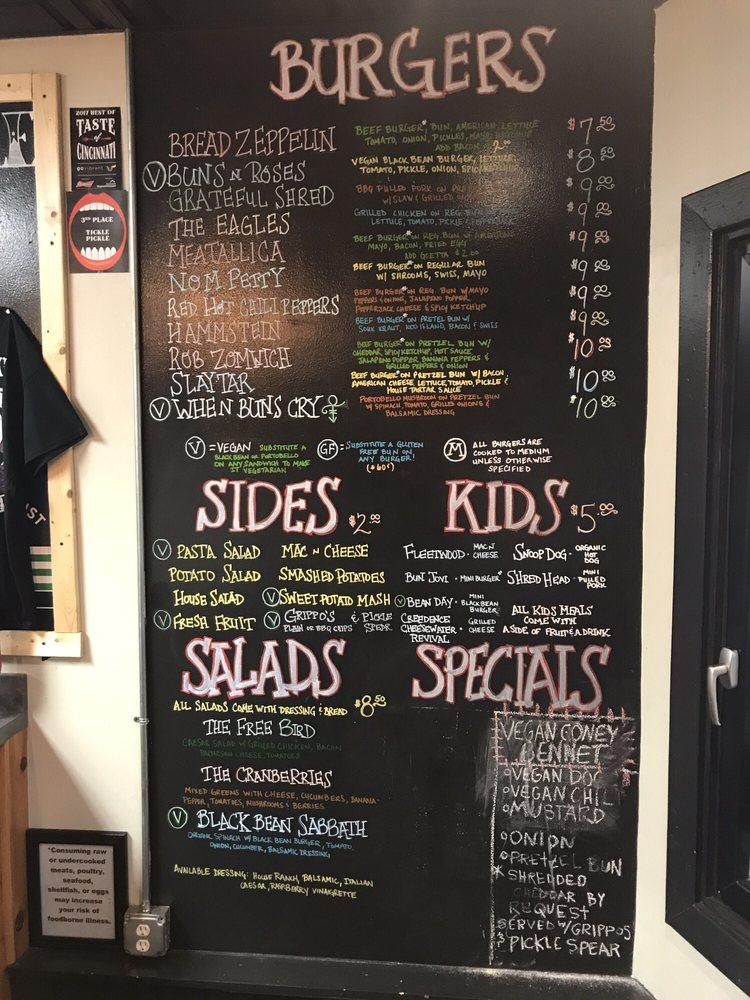 BURGERS
BREAD ZEPPELIN
BEEF BURGER*, BUN, AMERICAN, LETTUCE
TOMATO, ONION, PICKLES, MAYO
ADD BACON $2.00
$7.50
V BUNS N ROSES
VEGAN BLACK BEAN BURGER, LETTUCE,
TOMATO, PICKLE, ONION, SPICY
$8.50
GRATEFUL SHRED
BBQ PULLED PORK ON PRETZEL
W/ SLAW & GRILLED ONION
$9.00
THE EAGLES
GRILLED CHICKEN ON REG. BUN
LETTUCE, TOMATO, PICKLE
$9.00
MEATALLICA
BEEF BURGER* ON REG. BUN W/ AMERICAN
MAYO, BACON, FRIED EGG
ADD GOETTA $2.00
$9.00
NOM PETTY
BEEF BURGER* ON REGULAR BUN
W/ SHROOMS, SWISS, MAYO
$9.00
RED HOT CHILI PEPPERS
BEEF BURGER* ON REG. BUN W/MAYO
PEPPERS & ONIONS, JALAPENO POPPER,
PEPPERJACK CHEESE & SPICY KETCHUP
$9.00
HAMMSTEIN
BEEF BURGER* ON PRETZEL BUN W/
SOUR KRAUT, 1000 ISLAND, BACON & SWISS
$9.00
ROB ZOMWICH
BEEF BURGER* ON PRETZEL BUN W/
CHEDDAR, SPICY KETCHUP, HOT SAUCE
JALAPENO POPPER, BANANA PEPPERS &
GRILLED PEPPERS & ONION
$10.00
SLAYTAR
BEEF BURGER* ON PRETZEL BUN W/ BACON,
AMERICAN CHEESE LETTUCE, TOMATO, PICKLE &
HOUSE TARTAR SAUCE
$10.00
V WHEN BUNS CRY
PORTOBELLO MUSHROOM ON PRETZEL BUN
W/ SPINACH, TOMATO, GRILLED ONIONS &
BALSAMIC DRESSING
$10.00
V = VEGAN SUBSTITUTE A
BLACK BEAN OR PORTOBELLO
ON ANY SANDWICH TO MAKE
IT VEGETARIAN
GF = SUBSTITUTE A GLUTEN
FREE BUN ON
ANY BURGER!
M ALL BURGERS ARE
COOKED TO MEDIUM
UNLESS OTHERWISE
SPECIFIED
SIDES $2.00
V PASTA SALAD
MAC N CHEESE
POTATO SALAD
SMASHED POTATOES
HOUSE SALAD
V SWEET POTATO MASH
V FRESH FRUIT
V GRIPPO'S & PICKLE
PLAIN OR BBQ CHIPS SPEAR
KIDS $5.00
FLEETWOOD - MAC N CHEESE
SNOOP DOG - ORGANIC HOT DOG
BUN JOVI - MINI BURGER*
SHRED HEAD - MINI PULLED PORK
V BEAN DAY - MINI BLACK BEAN BURGER
CREEDENCE
CHEESEWATER - GRILLED CHEESE
REVIVAL
ALL KIDS MEALS
COME WITH
A SIDE OF FRUIT & A DRINK
SALADS
ALL SALADS COME WITH DRESSING & BREAD $8.50
THE FREE BIRD
CAESAR SALAD W/ GRILLED CHICKEN, BACON
PARMESAN CHEESE, TOMATOES
THE CRANBERRIES
MIXED GREENS WITH CHEESE, CUCUMBERS, BANANA
PEPPER, TOMATOES, MUSHROOMS & BERRIES
V BLACK BEAN SABBATH
ORGANIC SPINACH W/ BLACK BEAN BURGER, TOMATO,
ONION, CUCUMBER, BALSAMIC DRESSING
AVAILABLE DRESSING: HOUSE RANCH, BALSAMIC, ITALIAN
CAESAR, RASPBERRY VINAIGRETTE
SPECIALS
VEGAN CONEY
BENNET
VEGAN DOG
VEGAN CHIL
MUSTARD
ONION
PRETZEL BUN
* SHREDDED
CHEDDAR BY
REQUEST
SERVED W/GRIPPOS
& PICKLE SPEAR
2017 BEST OF
TASTE
of
CINCINNATI
govibrant
3RD PLACE
TICKLE
PICKLE
"Consuming raw
or undercooked
meats, poultry,
seafood,
shellfish, or eggs
may increase
your risk of
foodborne illness.